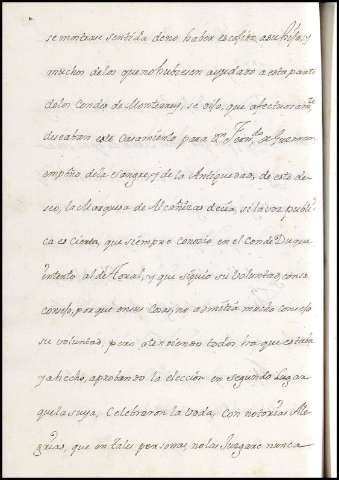 se mostrase sentida de no haber escrito a su hija, y
muchos de los que no hubiesen ayudado a esta parte
de los Condes de Monterrey, se dijo, que afectuosamte
deseaban este Casamiento para Dn Ferndo de Guzman
empeño de la sangre, y de la Antiguedad, de este de-
seo, la Marquesa de Alcañizas decia, si la voz publi-
ca es cierta, que siempre conocio en el Conde Duque
intento al de Toral, y que siguio su Voluntad, con su
consejo, porque en su Casa, no admitia mucho consejo
su voluntad, pero atendiendo todos a lo que estaba
ya hecho, aprobando la elección en segundo lugar
que la suya, Celebraron la boda, con notorias Ale-
grias, que en tales personas, no las Juzgare nunca